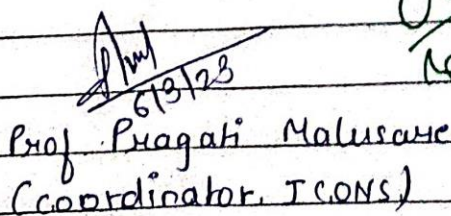 6/3/23
Prof. Pragati Malusare
(coordinator, ICONS)